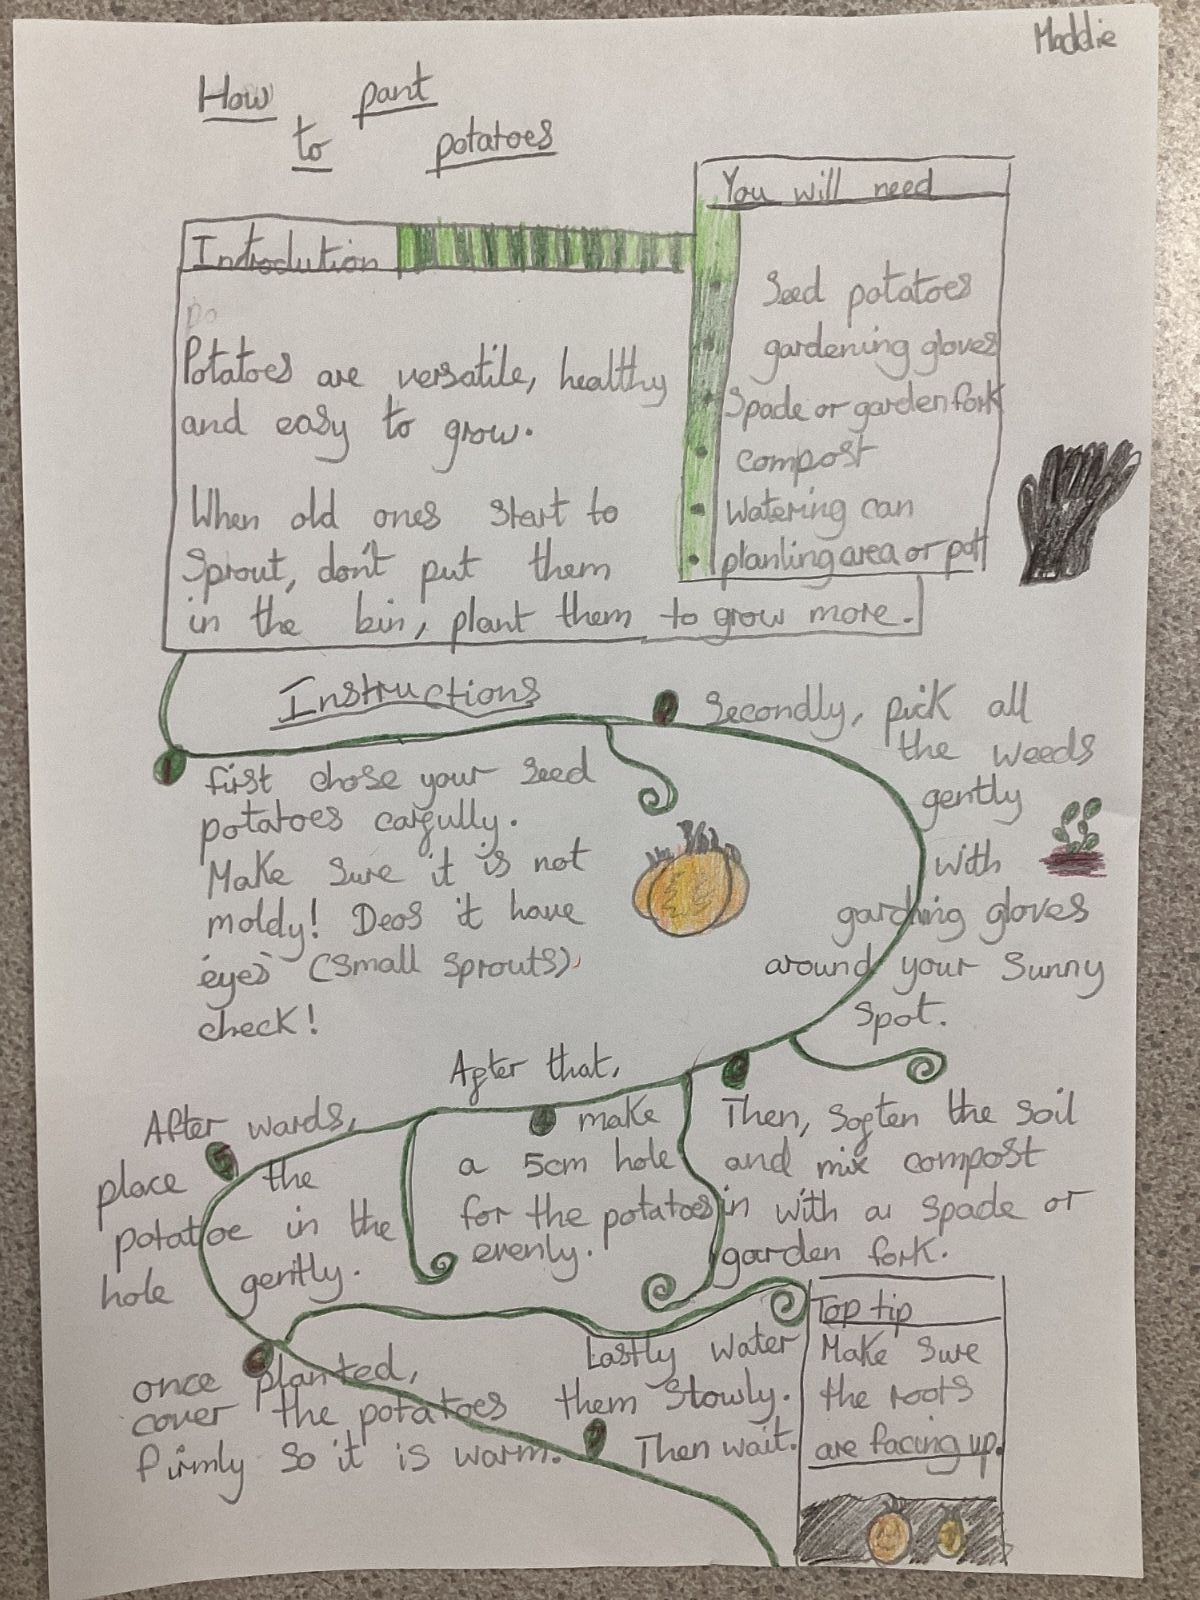 Maddie
How to pant potatoes
Introdution
Potatoes are versatile, healthy
and easy to grow.
When old ones start to
sprout, don't put them
in the bin, plant them to grow more.
You will need
Seed potatoes
gardening gloves
Spade or garden fork
compost
Watering can
planting area or pott
Instructions
first chose your seed
potatoes carfully.
Make sure it is not
moldy! Deos it have
'eyes' (small sprouts)
check!
Secondly, pick all
the weeds
gently
with
garding gloves
around your sunny
spot.
Then, soften the soil
and mix compost
in with a spade or
garden fork.
After that,
make
a 5cm hole
for the potatoes
evenly.
After wards,
place the
potatoe in the
hole gently.
once planted,
cover the potatoes
firmly so it is warm.
Lastly water
them slowly.
Then wait.
Top tip
Make sure
the roots
are facing up.